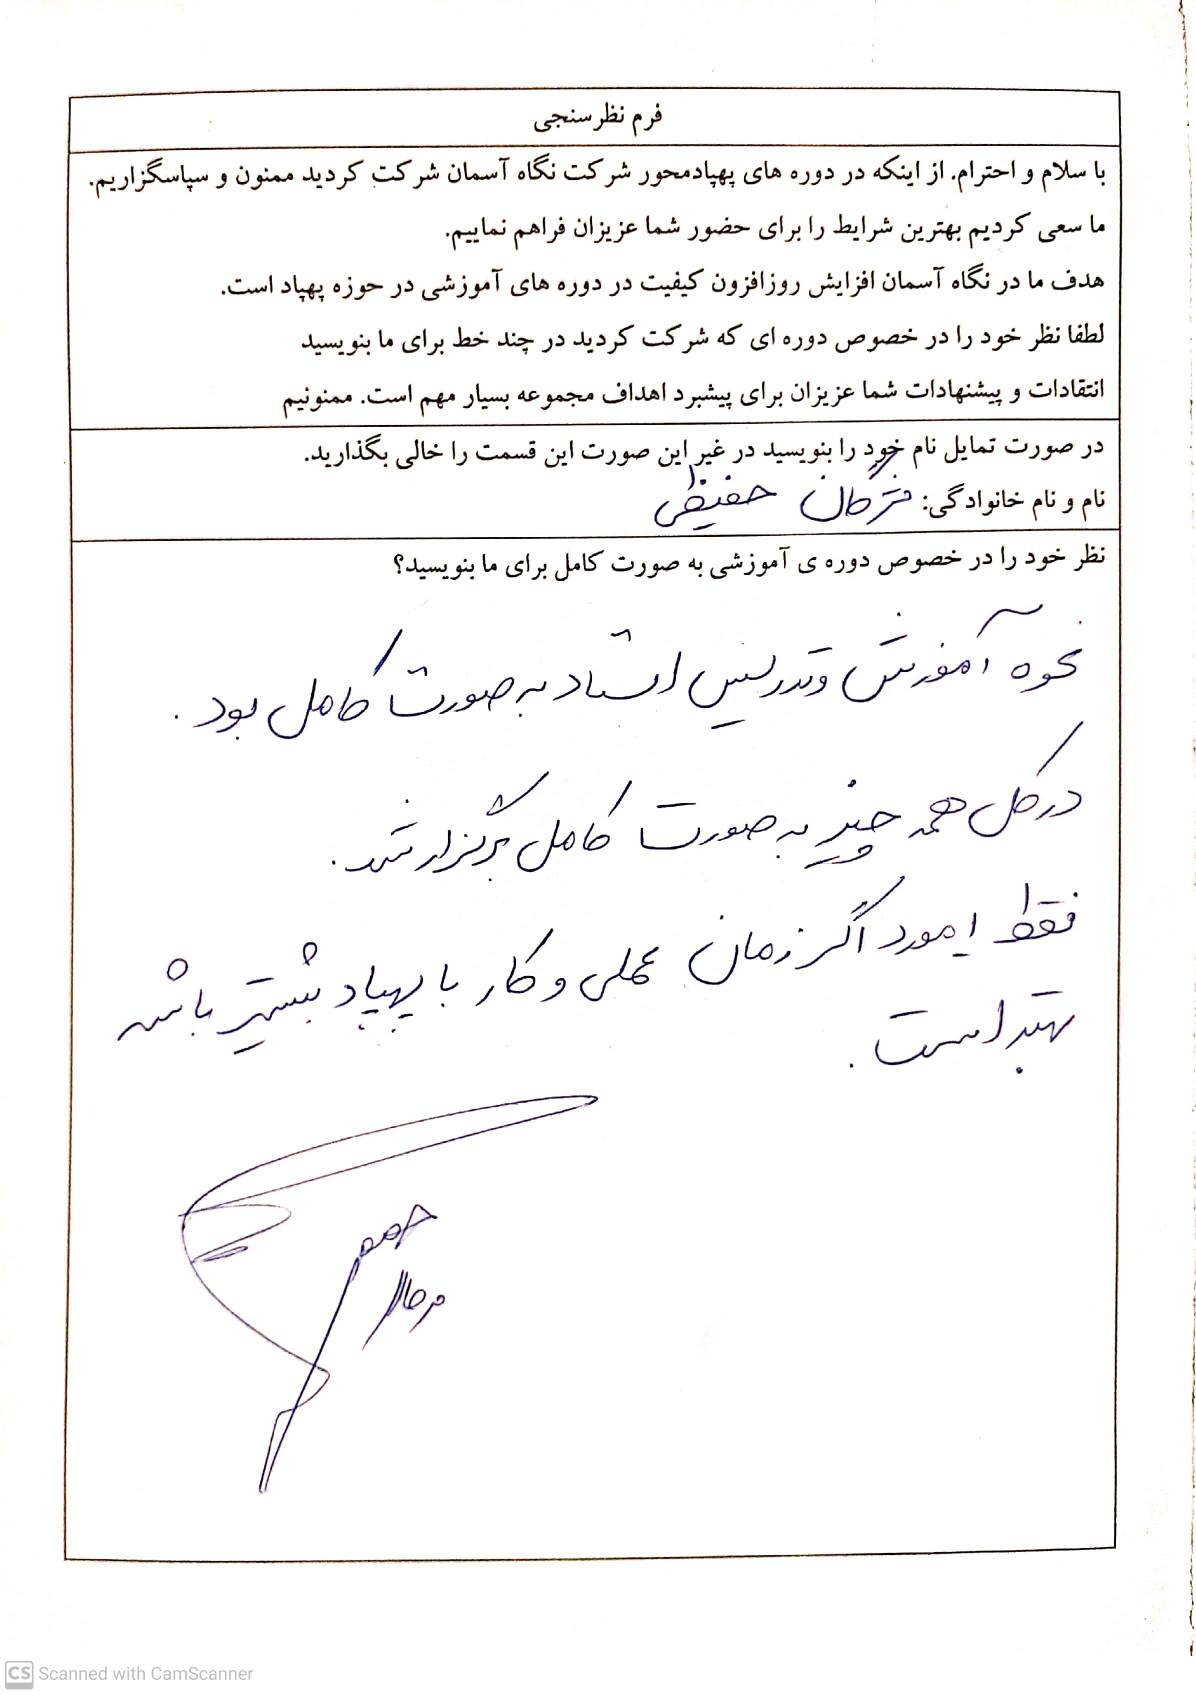 فرم نظرسنجی
با سلام و احترام. از اینکه در دوره های پهپادمحور شرکت نگاه آسمان شرکت کردید ممنون و سپاسگزاریم.
ما سعی کردیم بهترین شرایط را برای حضور شما عزیزان فراهم نماییم.
هدف ما در نگاه آسمان افزایش روزافزون کیفیت در دوره های آموزشی در حوزه پهپاد است.
لطفا نظر خود را در خصوص دوره ای که شرکت کردید در چند خط برای ما بنویسید
انتقادات و پیشنهادات شما عزیزان برای پیشبرد اهداف مجموعه بسیار مهم است. ممنونیم
در صورت تمایل نام خود را بنویسید در غیر این صورت این قسمت را خالی بگذارید.
نام و نام خانوادگی: حفیظی
نظر خود را در خصوص دوره ی آموزشی به صورت کامل برای ما بنویسید؟
نحوه آموزش و تدریس استاد به صورت کامل بود.
در کل همه چیز به صورت کامل برگزار شد.
فقط ۱ مورد اگر زمان عملی و کار با پهپاد بیشتر باشد
بهتر است.
CS Scanned with CamScanner